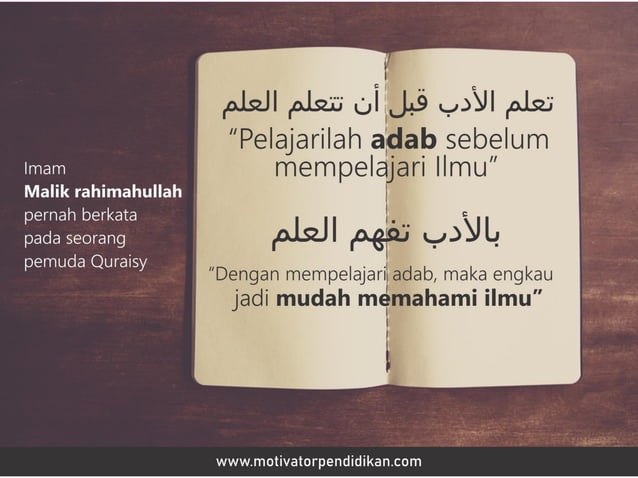 Imam
Malik rahimahullah
pernah berkata
pada seorang
pemuda Quraisy
تعلم الأدب قبل أن تتعلم العلم
“Pelajarilah adab sebelum
mempelajari Ilmu”
بالأدب تفهم العلم
“Dengan mempelajari adab, maka engkau
jadi mudah memahami ilmu”
www.motivatorpendidikan.com